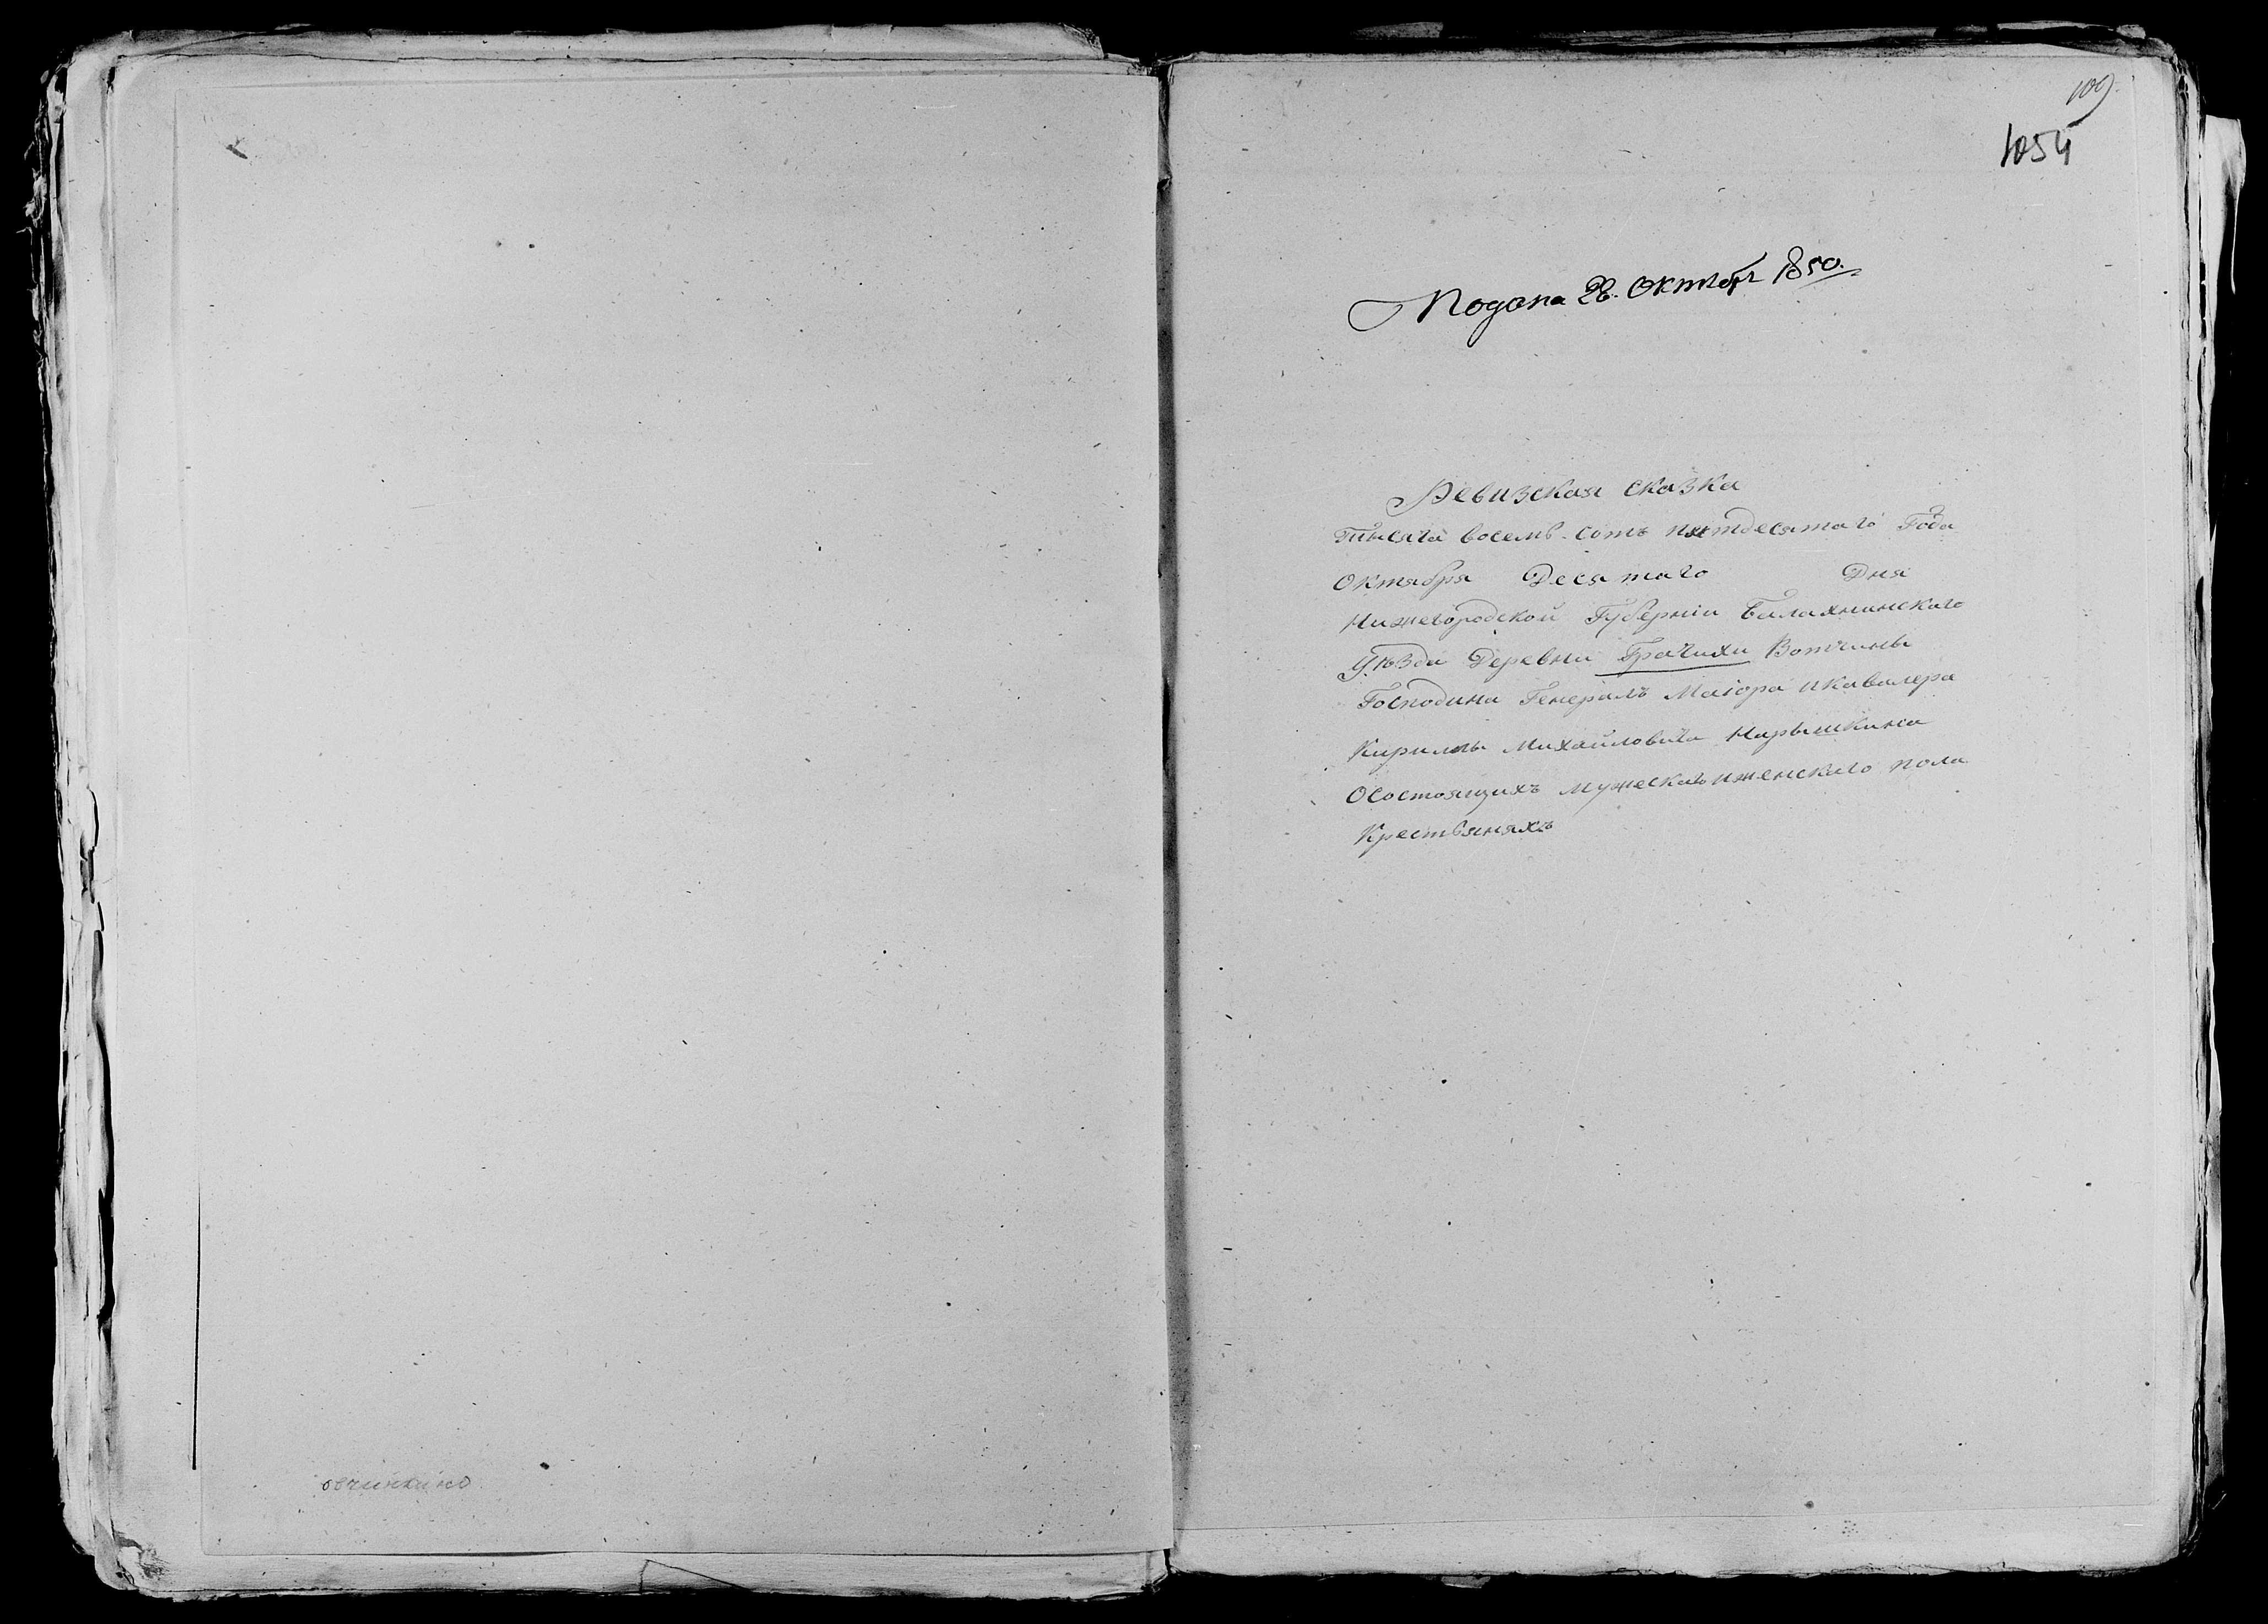 1054
Подана 28. Октября 1850.
Ревизская сказка
Тысяча восемь сотъ пятдесятаго Года
Октября Десятаго Дня
Нижегородской Губерніи Балахнинскаго
Уѣзда Деревни Грачихи Вотчины
Господина Генералъ Маіора и кавалера
Кирилы Михайловича Нарышкина
О состоящихъ мужеска и женскаго пола
Крестьянахъ